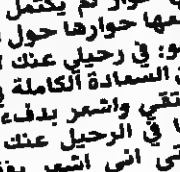 حوار لم يكتمل
معها حوارها حول
هو: في رحيلي عنك
السعادة الكاملة
تقي واشعر بدفء
في الرحيل عنك
اني اشعر